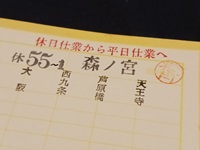 休日仕業から平日仕業へ
休55~1 森ノ宮
大阪 西九条 芦原橋 天王寺